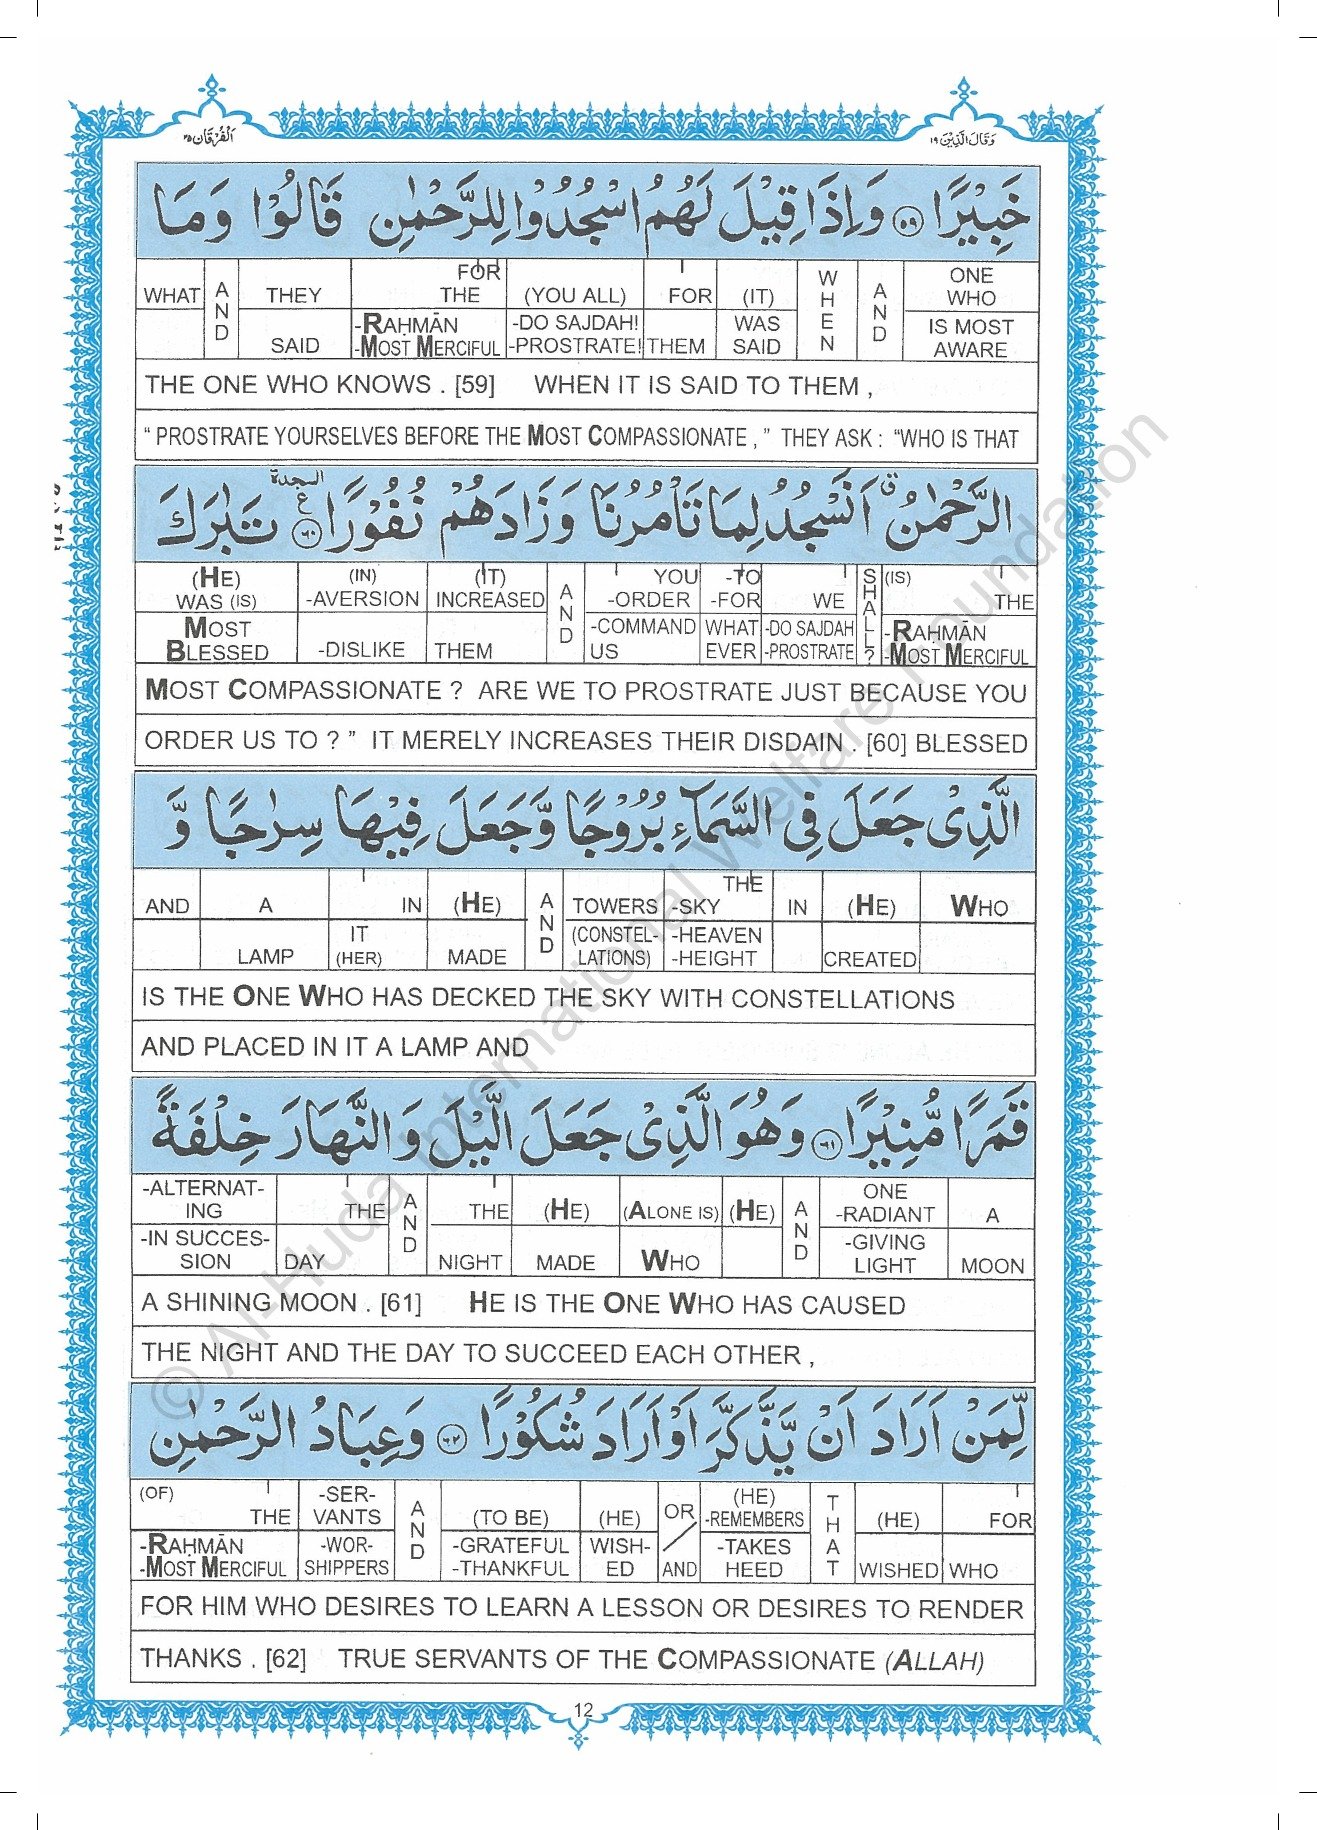 اَلْفُرْقَان ٢٥
وَقَالَ الَّذِيْنَ ١٩
خَبِيْرًا ﴿٥٩﴾ وَاِذَا قِيْلَ لَهُمُ اسْجُدُوْا لِلرَّحْمٰنِ قَالُوْا وَمَا
WHAT AND THEY FOR THE (YOU ALL) FOR (IT) WHEN AND ONE WHO
SAID -RAḤMĀN -MOST MERCIFUL -DO SAJDAH! -PROSTRATE! THEM WAS SAID IS MOST AWARE
THE ONE WHO KNOWS . [59] WHEN IT IS SAID TO THEM ,
“ PROSTRATE YOURSELVES BEFORE THE MOST COMPASSIONATE , ” THEY ASK : “WHO IS THAT
الرَّحْمٰنُ ق اَنَسْجُدُ لِمَا تَاْمُرُنَا وَزَادَهُمْ نُفُوْرًا ﴿٦٠﴾ السجدة ع تَبٰرَكَ
(HE) WAS (IS) (IN) -AVERSION (IT) INCREASED AND YOU -ORDER -TO -FOR WE SHALL? (IS) THE
MOST BLESSED -DISLIKE THEM -COMMAND US WHAT EVER -DO SAJDAH -PROSTRATE -RAḤMĀN -MOST MERCIFUL
MOST COMPASSIONATE ? ARE WE TO PROSTRATE JUST BECAUSE YOU
ORDER US TO ? ” IT MERELY INCREASES THEIR DISDAIN . [60] BLESSED
الَّذِيْ جَعَلَ فِي السَّمَآءِ بُرُوْجًا وَّجَعَلَ فِيْهَا سِرٰجًا وَّ
AND A IN (HE) AND TOWERS THE -SKY IN (HE) WHO
LAMP IT (HER) MADE (CONSTEL-LATIONS) -HEAVEN -HEIGHT CREATED
IS THE ONE WHO HAS DECKED THE SKY WITH CONSTELLATIONS
AND PLACED IN IT A LAMP AND
قَمَرًا مُّنِيْرًا ﴿٦١﴾ وَهُوَ الَّذِيْ جَعَلَ الَّيْلَ وَالنَّهَارَ خِلْفَةً
-ALTERNAT-ING THE AND THE (HE) (ALONE IS) (HE) AND ONE -RADIANT A
-IN SUCCES-SION DAY NIGHT MADE WHO -GIVING LIGHT MOON
A SHINING MOON . [61] HE IS THE ONE WHO HAS CAUSED
THE NIGHT AND THE DAY TO SUCCEED EACH OTHER ,
لِّمَنْ اَرَادَ اَنْ يَّذَّكَّرَ اَوْ اَرَادَ شُكُوْرًا ﴿٦٢﴾ وَعِبَادُ الرَّحْمٰنِ
(OF) THE -SER-VANTS AND (TO BE) (HE) OR (HE) -REMEMBERS THAT (HE) FOR
-RAḤMĀN -MOST MERCIFUL -WOR-SHIPPERS -GRATEFUL -THANKFUL WISH-ED AND -TAKES HEED WISHED WHO
FOR HIM WHO DESIRES TO LEARN A LESSON OR DESIRES TO RENDER
THANKS . [62] TRUE SERVANTS OF THE COMPASSIONATE (ALLAH)
12
© Al-Huda International Welfare Foundation